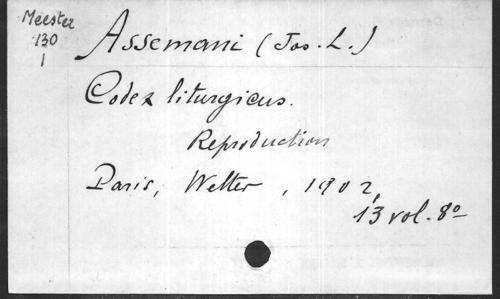 Meester
130
1
Assemani (Jos. L.)
Codex liturgicus.
Reproduction
Paris, Welter, 1902,
13 vol. 8º